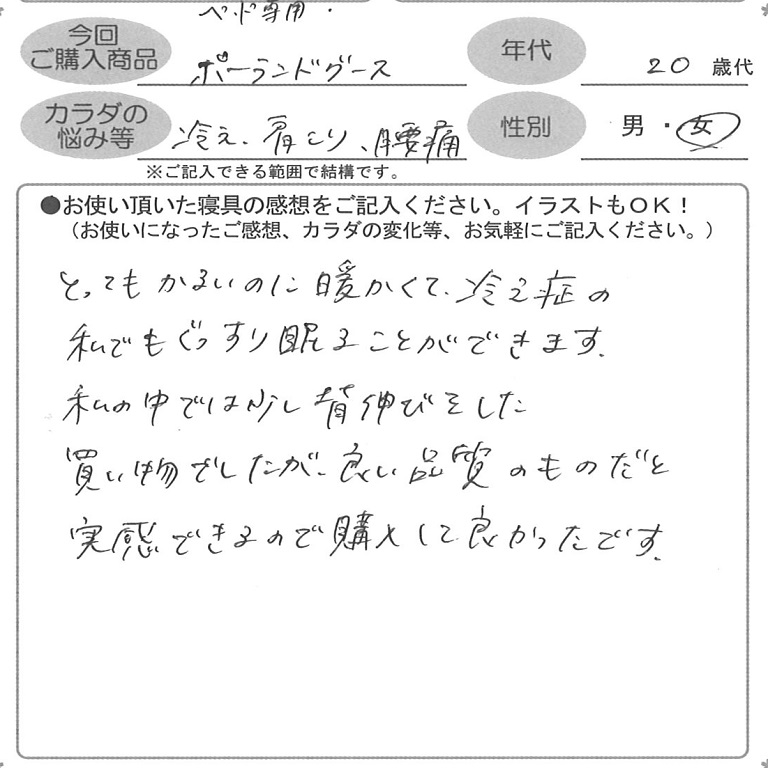 ベッド専用・
今回
ご購入商品
ポーランドグース
年代
20 歳代
カラダの
悩み等
冷え、肩こり、腰痛
性別
男・女
※ご記入できる範囲で結構です。
●お使い頂いた寝具の感想をご記入ください。イラストもOK!
(お使いになったご感想、カラダの変化等、お気軽にご記入ください。)
とってもかるいのに暖かくて、冷え症の
私でもぐっすり眠ることができます。
私の中では少し背伸びをした
買い物でしたが、良い品質のものだと
実感できるので購入して良かったです。